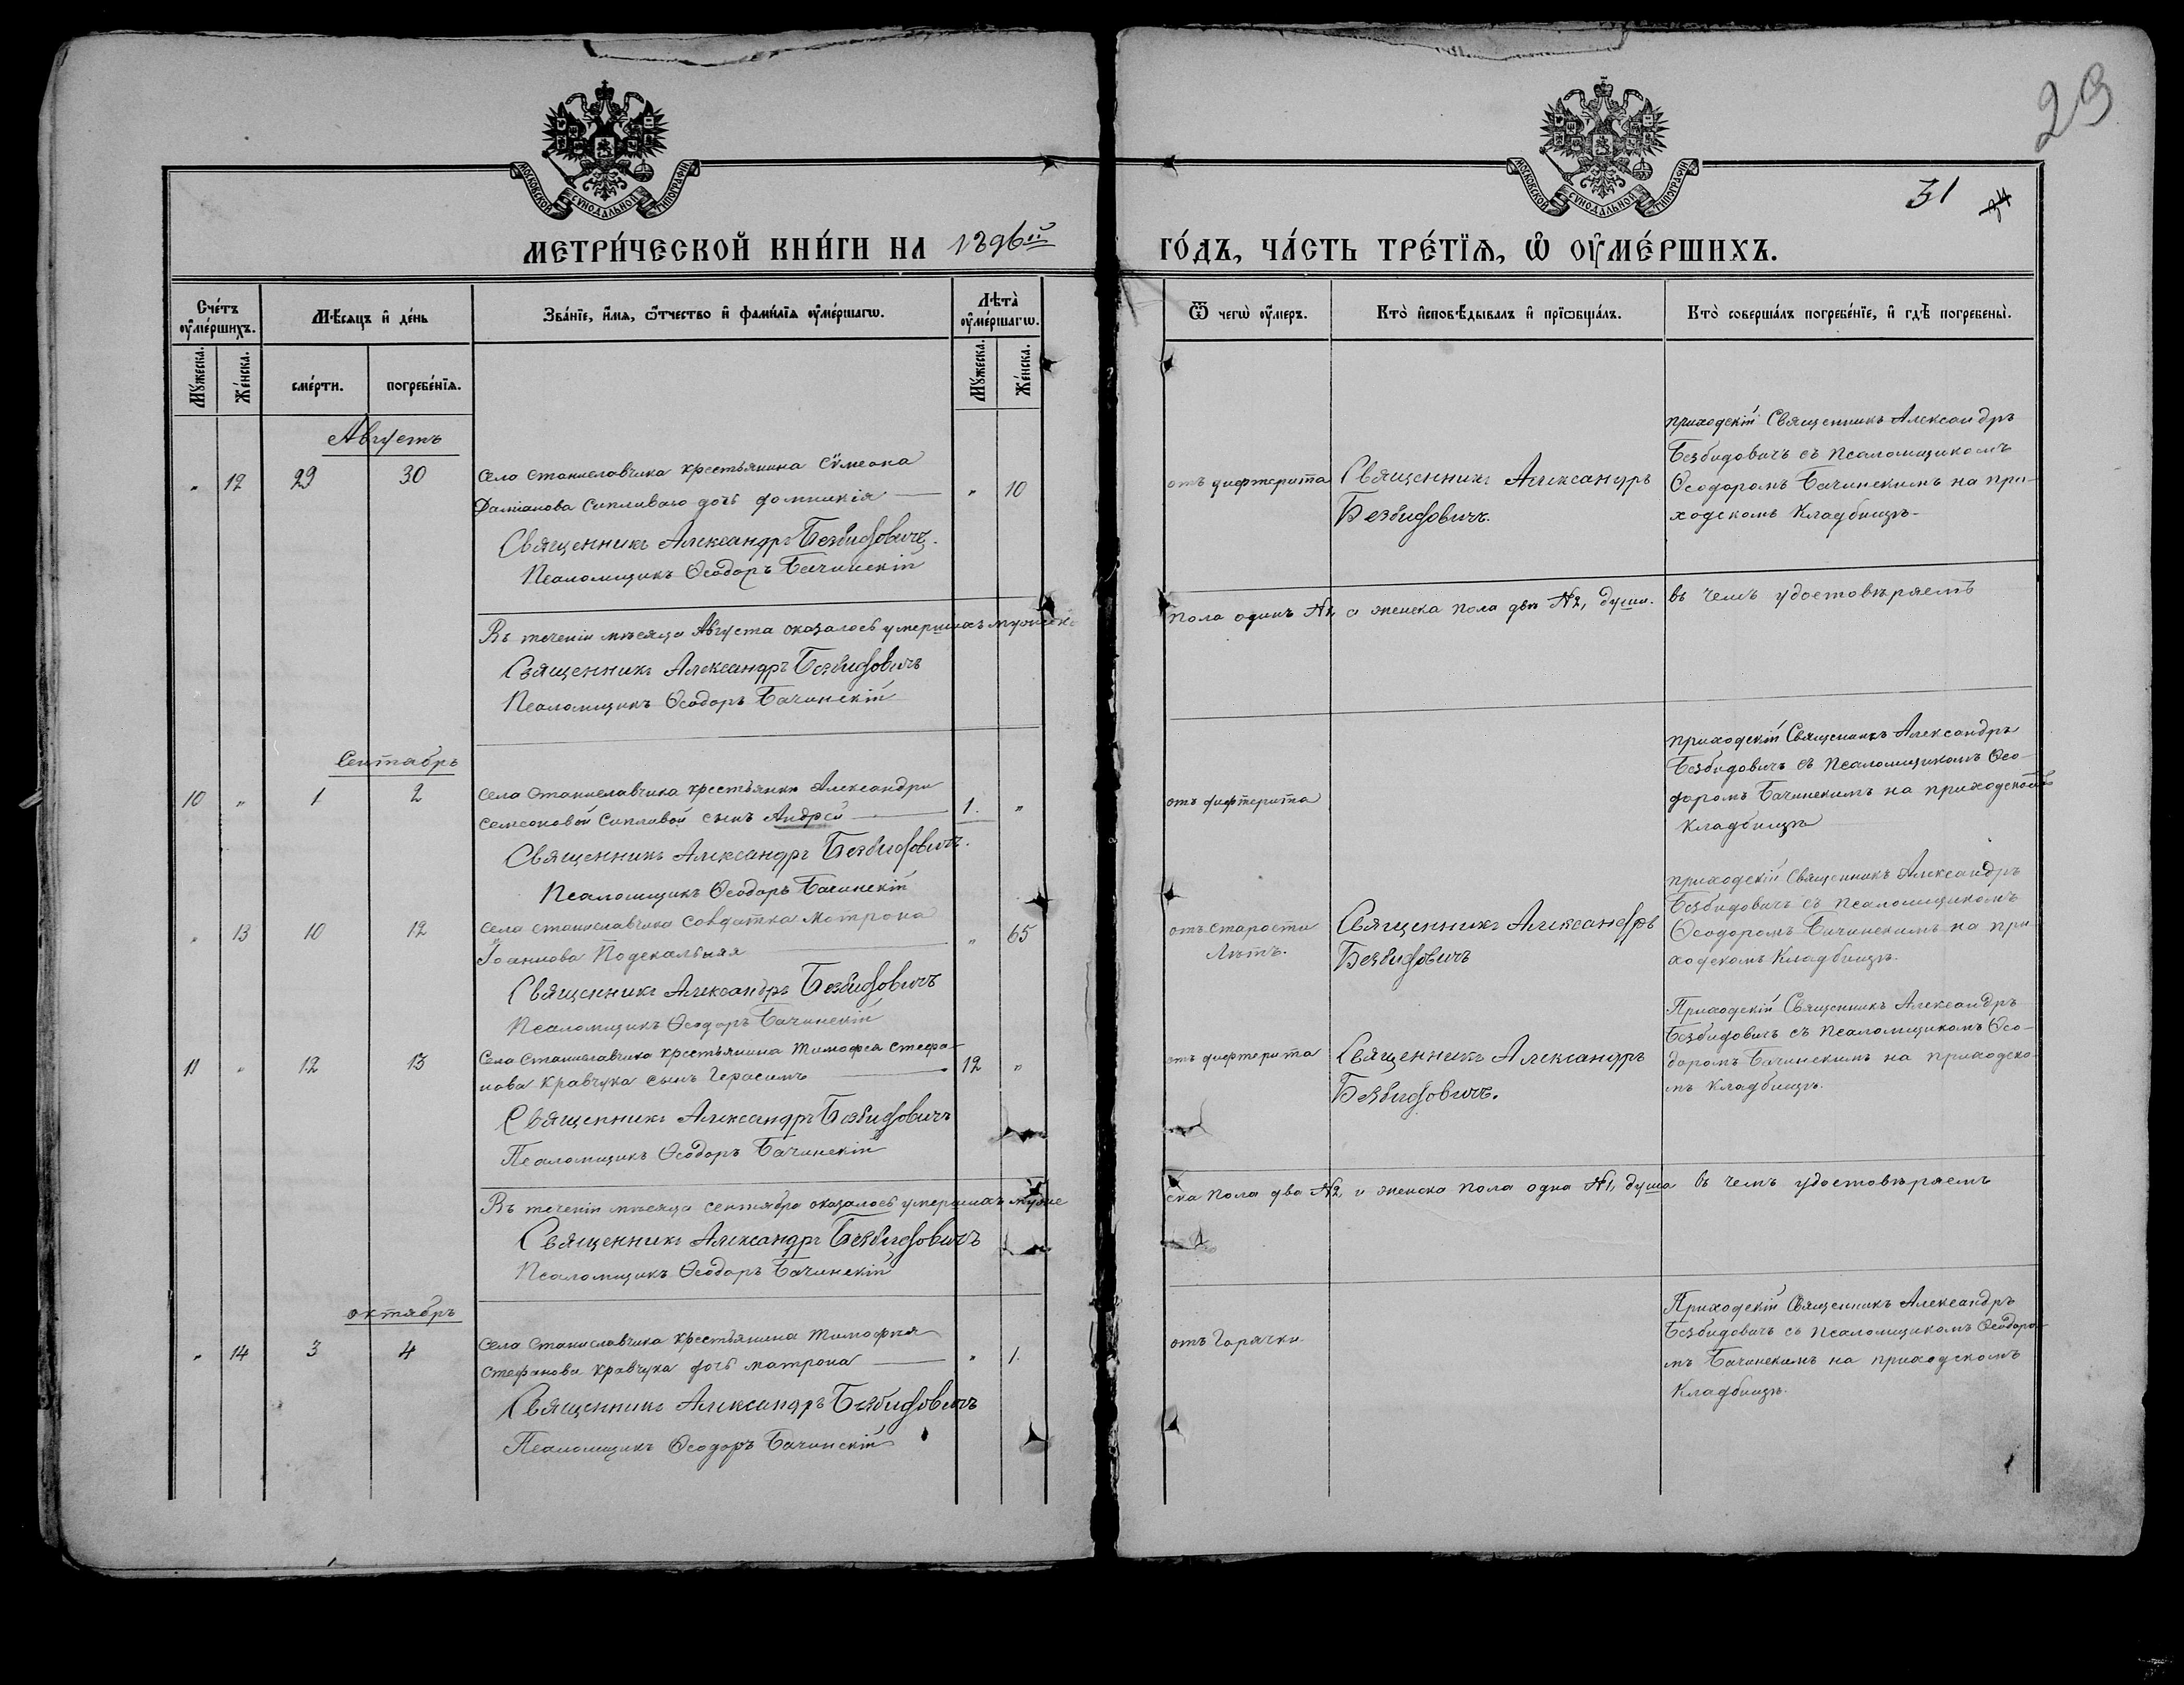 23
31
МОСКОВСКОЙ СѴНОДАЛЬНОЙ ТИПОГРАФІИ
МОСКОВСКОЙ СѴНОДАЛЬНОЙ ТИПОГРАФІИ
МЕТРИ́ЧЕСКОЙ КНИ́ГИ НА 1896ій
ГО́ДЪ, ЧА́СТЬ ТРЕ́ТІѦ, Ѡ ОУМЕ́РШИХЪ.
Сче́тъ оуме́ршихъ.
Мѣ́сяцъ и де́нь
Зва́нїе, и́мѧ, ѻ҆́тчество и фами́лїѧ оуме́ршагѡ.
Лѣта̀ оуме́ршагѡ.
Ѿ чегѡ̀ оу́меръ.
Кто̀ и҆сповѣ́дывалъ и҆ прїѡбща́лъ.
Кто̀ соверша́лъ погребе́нїе, и҆ гдѣ̀ погребены̀.
Мꙋ́жеска.
Же́нска.
сме́рти.
погребе́нїѧ.
Мꙋ́жеска.
Же́нска.
Августъ
" 12 29 30 Села Станиславчика крестьянина Сѵмеона
Даміанова Сипливаго дочь Домникія " 10
Священникъ Александръ Безбидовичъ.
Псаломщикъ Ѳеодоръ Бачинскій
отъ дифтерита
Священникъ Александръ
Безбидовичъ.
приходскій Священникъ Александръ
Безбидовичъ съ Псаломщикомъ
Ѳеодоромъ Бачинскимъ на при-
ходскомъ кладбищѣ.
Въ теченіи мѣсяца Августа оказалось умершихъ мужеска
пола одинъ №1, а женска пола двѣ №2, души. въ чемъ удостовѣряемъ
Священникъ Александръ Безбидовичъ
Псаломщикъ Ѳеодоръ Бачинскій
Сентябрь
10 " 1 2 Села Станиславчика крестьянки Александры
Семеоновой Сипливой сынъ Андрей 1. "
Священникъ Александръ Безбидовичъ.
Псаломщикъ Ѳеодоръ Бачинскій
отъ дифтерита
приходскій Священникъ Александръ
Безбидовичъ съ Псаломщикомъ Ѳео-
доромъ Бачинскимъ на приходскомъ
кладбищѣ
" 13 10 12 Села Станиславчика Солдатка Матрона
Іоаннова Подскальняя " 65
Священникъ Александръ Безбидовичъ
Псаломщикъ Ѳеодоръ Бачинскій
отъ старости
лѣтъ.
Священникъ Александръ
Безбидовичъ
приходскій Священникъ Александръ
Безбидовичъ съ Псаломщикомъ
Ѳеодоромъ Бачинскимъ на при-
ходскомъ кладбищѣ.
11 " 12 13 Села Станиславчика крестьянина Тимофея Стефа-
нова Кравчука сынъ Герасимъ 12 "
Священникъ Александръ Безбидовичъ
Псаломщикъ Ѳеодоръ Бачинскій
отъ дифтерита
Священникъ Александръ
Безбидовичъ.
Приходскій Священникъ Александръ
Безбидовичъ съ Псаломщикомъ Ѳео-
доромъ Бачинскимъ на приходско-
мъ кладбищѣ.
Въ теченіи мѣсяца сентября оказалось умершихъ муже
ска пола два №2, и женска пола одна №1, душа въ чемъ удостовѣряемъ
Священникъ Александръ Безбидовичъ
Псаломщикъ Ѳеодоръ Бачинскій
октябрь
" 14 3 4 Села Станиславчика крестьянина Тимофея
Стефанова Кравчука дочь Матрона " 1.
Священникъ Александръ Безбидовичъ
Псаломщикъ Ѳеодоръ Бачинскій
отъ горячки
Приходскій Священникъ Александръ
Безбидовичъ съ Псаломщикомъ Ѳеодоро-
мъ Бачинскимъ на приходскомъ
кладбищѣ.